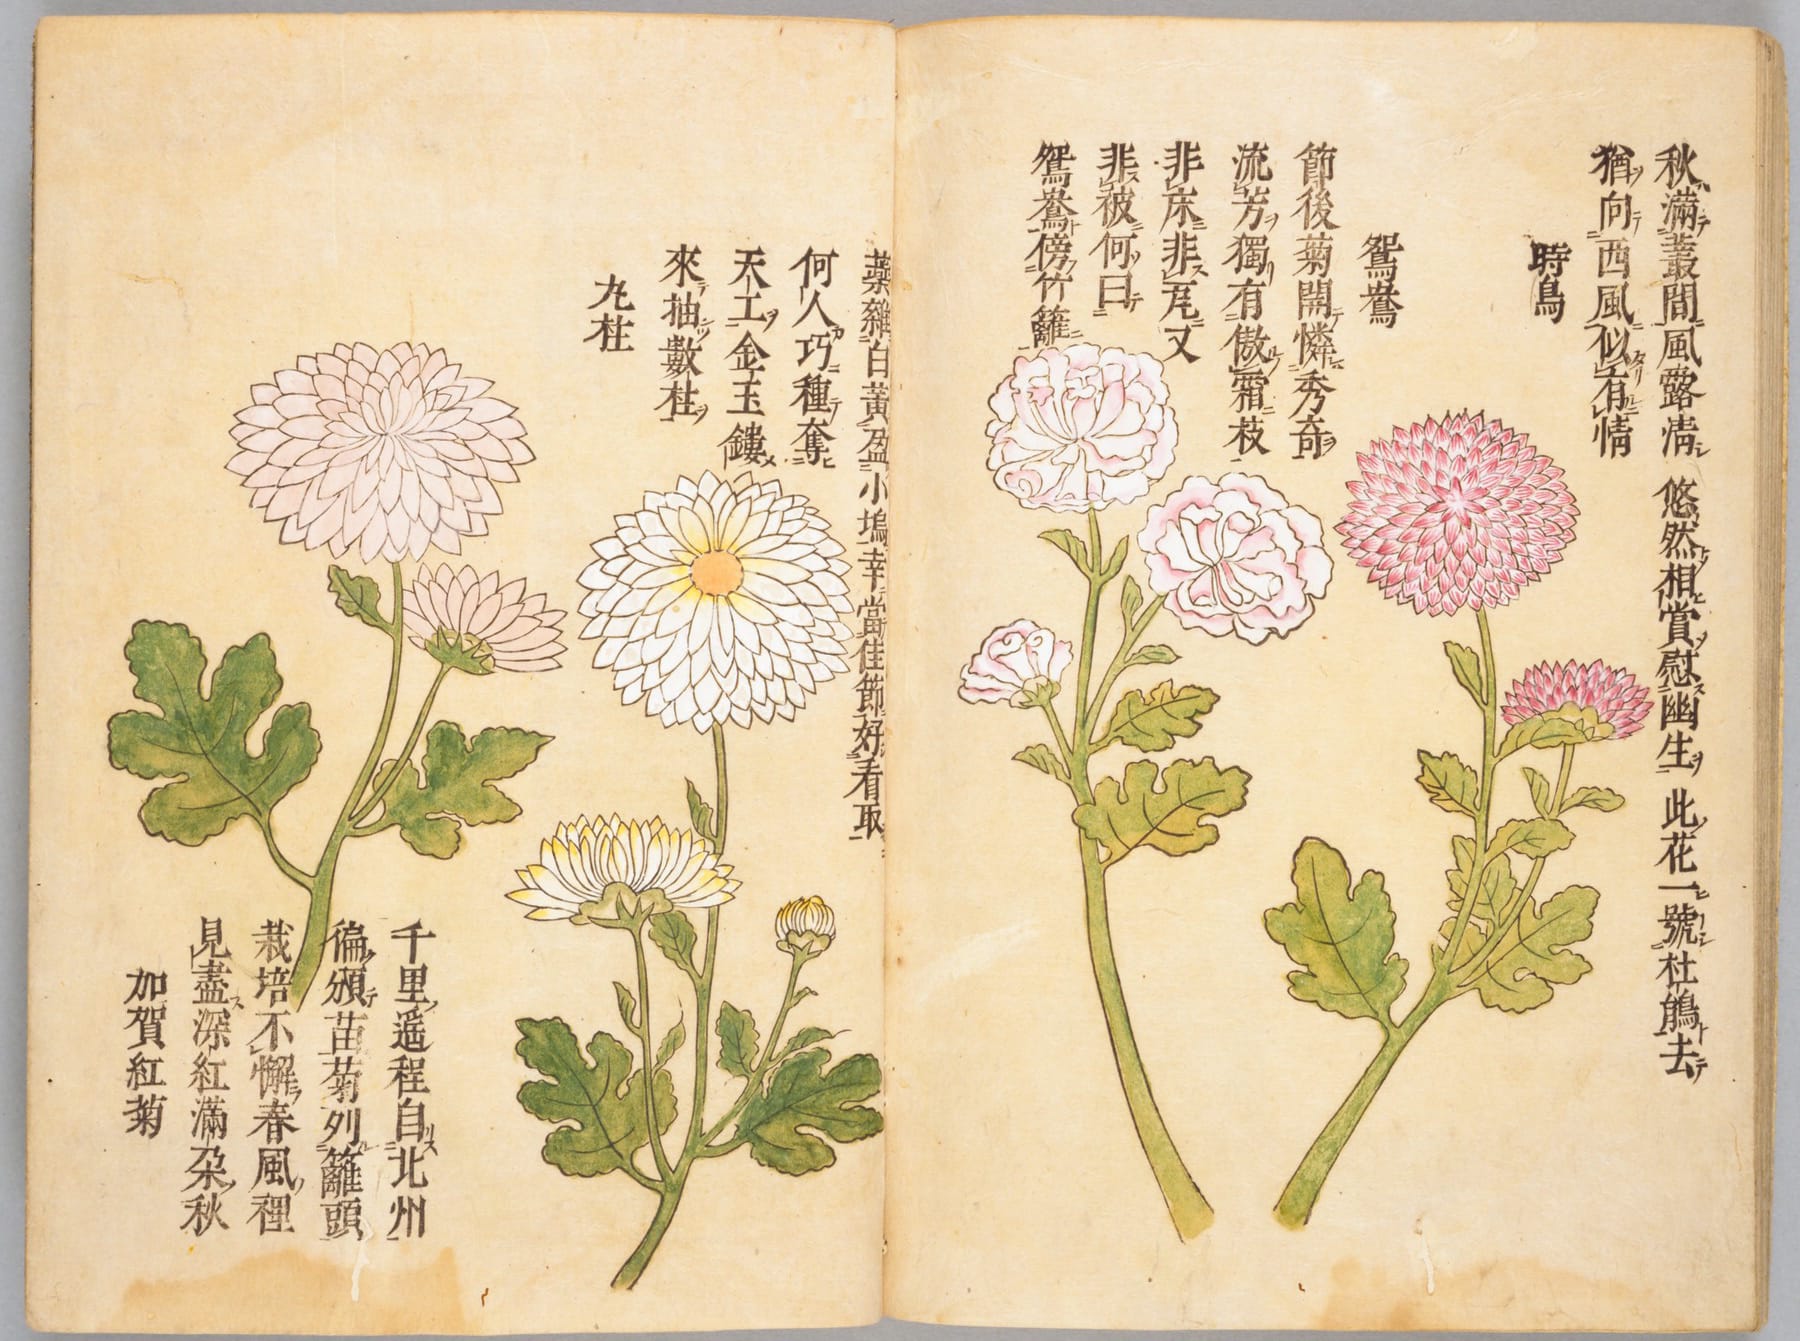 秋滿叢間風露淸 悠然相賞慰幽生 此花一號杜鵑去
猶向西風似有情
時鳥
鴛鴦
節後菊開憐秀奇
流芳獨有傲霜枝
非床非瓦又
非被何曰
鴛鴦傍竹籬
蘂雜白黃盈小塢幸當佳節好看取
何人巧種奪
天工金玉鏤
來抽數柱
九柱
千里遥程自北州
徧頒苗菊列籬頭
栽培不懈春風裡
見盡深紅滿朶秋
加賀紅菊